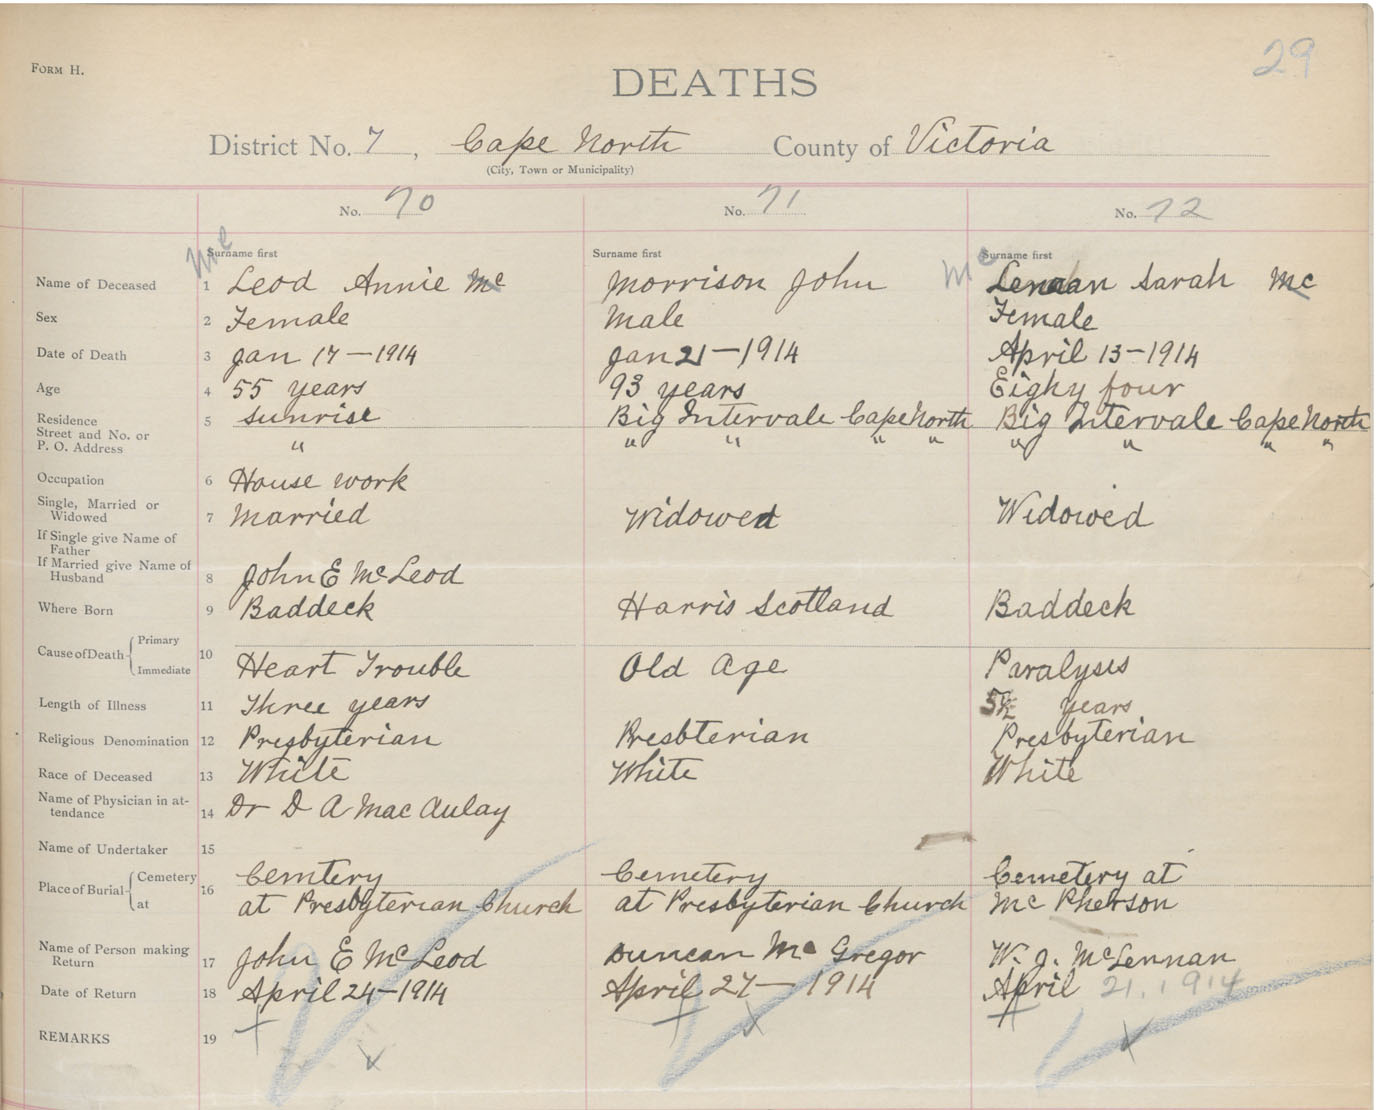 29
FORM H.
DEATHS
District No. 7, Cape North County of Victoria
(City, Town or Municipality)
No. 70 No. 71 No. 72
Mc Surname first Surname first Mc Surname first
Name of Deceased 1 Leod Annie Mc Morrison John Lennan Sarah Mc
Sex 2 Female Male Female
Date of Death 3 Jan 17-1914 Jan 21-1914 April 13-1914
Age 4 55 years 93 years Eighy four
Residence 5 Sunrise Big Intervale Cape North Big Intervale Cape North
Street and No. or
P. O. Address " " " " " " " " "
Occupation 6 House work
Single, Married or
Widowed 7 Married Widowed Widowed
If Single give Name of
Father
If Married give Name of
Husband 8 John E McLeod
Where Born 9 Baddeck Harris Scotland Baddeck
Cause of Death Primary
10
Immediate Heart Trouble Old Age Paralysis
Length of Illness 11 Three years 5½ years
Religious Denomination 12 Presbyterian Presbterian Presbyterian
Race of Deceased 13 White White White
Name of Physician in at-
tendance 14 Dr D A MacAulay
Name of Undertaker 15
Place of Burial Cemetery 16 Cemtery Cemetery Cemetery at
at at Presbyterian Church at Presbyterian Church McPherson
Name of Person making
Return 17 John E McLeod Duncan McGregor W. J. McLennan
Date of Return 18 April 24-1914 April 27-1914 April 21, 1914
REMARKS 19